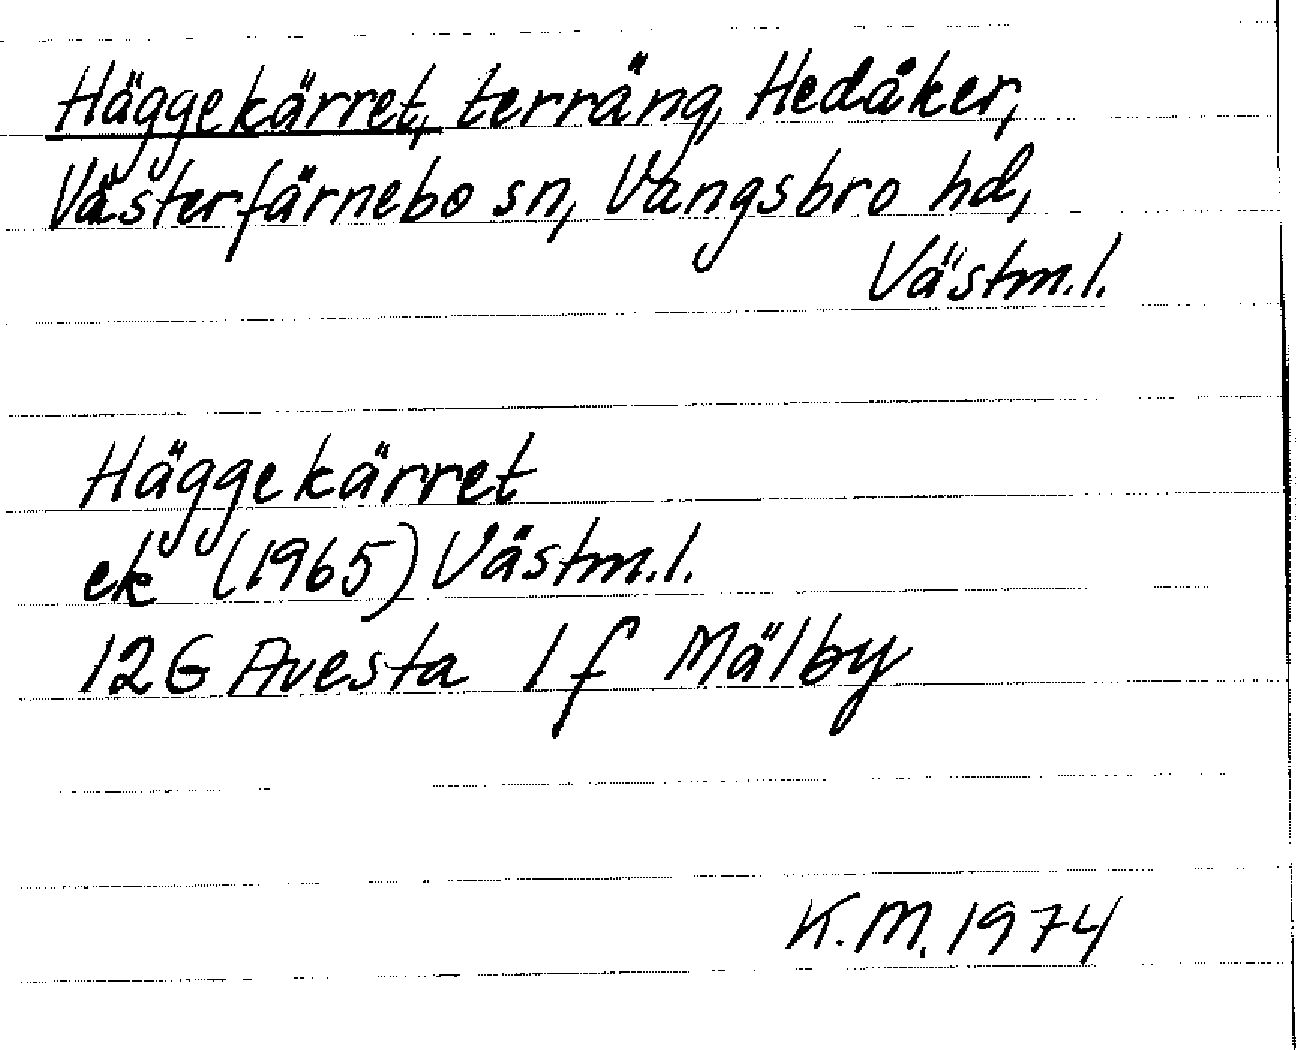 Häggekärret, terräng, Hedåker,
Västerfärnebo sn, Vangsbro hd,
Västm.l.
Häggekärret
ek (1965) Västm.l.
12G Avesta 1 f Mälby
K.M. 1974